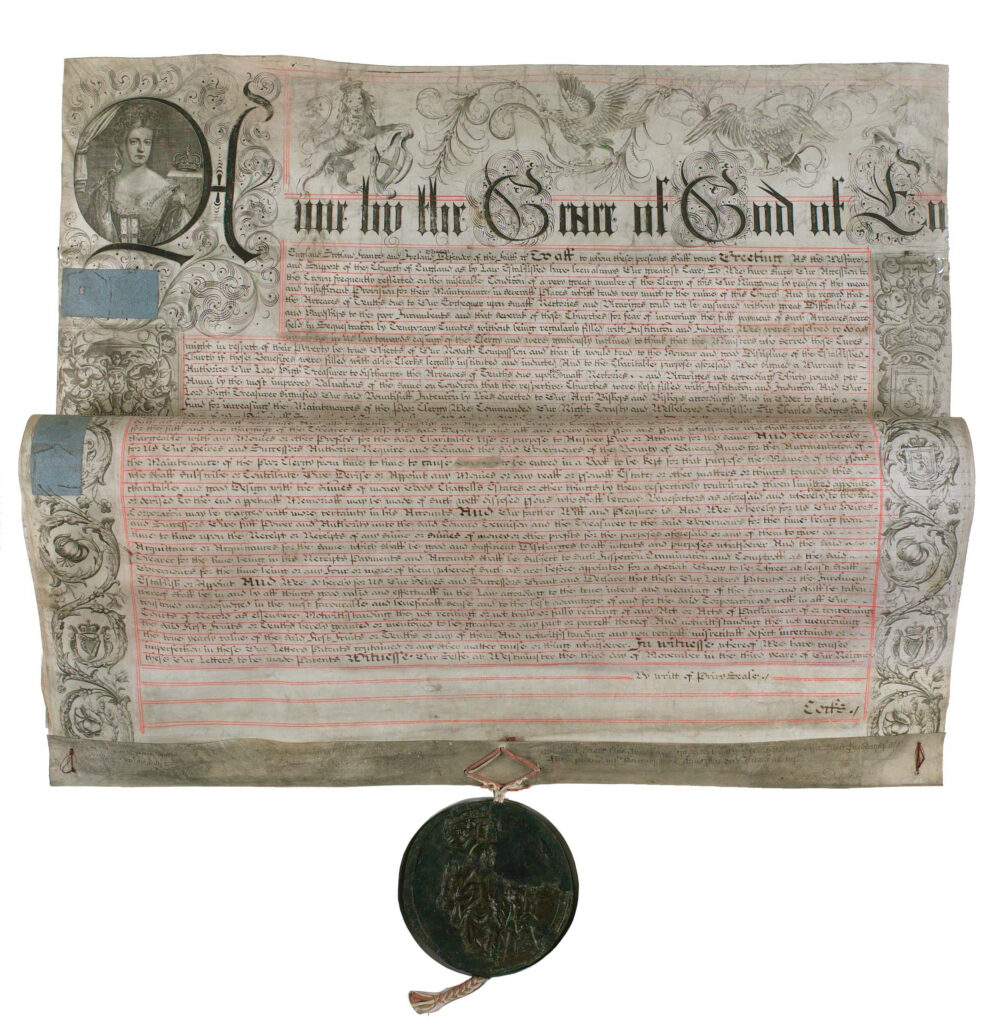 Anne by the Grace of God of En
England Scotland France and Ireland Defender of the Faith &c To all to whom these presents shall come Greeting As the Welfare
and Support of the Church of England as by Law Established have been always Our greatest Care So Wee have since Our Accession to
the Crown frequently reflected on the miserable Condition of a very great number of the Clergy of this Our Kingdome by reason of the mean
and insufficient Provision for their Maintenance in severall Places which tends very much to the ruine of this Church And in regard that
the Arreares of Tenths due to Our Exchequer upon small Rectories and Vicariges could not be answered without great Difficulties
and Hardships to the poor Incumbents and that severall of those Churches for fear of incurring the full payment of such Arreares were
held in Sequestration by Temporary Curates without being regularly filled with Institution and Induction Wee were resolved to do as
by Law towards easing the Clergy and were graciously inclined to think that the Ministers who served those Cures
might in respect of their Poverty be true Objects of Our Royall Compassion and that it would tend to the Honour and good Discipline of the Established
Church if those Benefices were filled with able Clerks legally instituted and inducted And to the charitable purpose aforesaid Wee signed a Warrant to
Authorize Our Lord High Treasurer to discharge the Arreares of Tenths due upon small Rectories and Vicariges not exceeding Thirty pounds per
Annum by the most improved Valuations of the same on Condition that the respective Churches were first filled with Institution and Induction And Our
Lord High Treasurer signified Our said Bountifull Intention by Letters directed to Our Arch Bishops and Bishops accordingly And in Order to settle a
Fund for increasing the Maintenance of the Poor Clergy Wee Commanded Our Right Trusty and Welbeloved Counsellor Sir Charles Hedges
chargeable with any Monies or other Profits for the said Charitable Use or purpose to Answer Pay or Account for the same And Wee do hereby
for Us Our Heires and Successors Authorize Require and Comand the said Governours of the Bounty of Queen Anne for the Augmentation of
the Maintenance of the Poor Clergy from time to time to cause to be entred in a Book to be kept for that purpose the Names of all the psons
who shall Subscribe or Contribute Give Devise or Appoint any Monies or any reall or psonall Estate or other matters or things towards this
charitable and good Design with the Summes of money Goods Chattells Estates or other things by them respectively contributed given limitted appointed
or devised To the end a ppetuall Memoriall may be made of such well disposed psons who shall become Benefactors as aforesaid and whereby the said
Corporacon may be charged with more certainty in his Accounts And Our further Will and Pleasure is And Wee do hereby for Us Our Heires
and Successors Give full Power and Authority unto the said and the Treasurer to the said Governours for the time being from
time to time upon the Receipt or Receipts of any summe or summes of money or other profits for the purposes aforesaid or any of them to give an
Acquittance or Acquittances for the same which shall be good and sufficient Discharges to all intents and purposes whatsoever And the said
Treasurer for the time being in his Receipts Payments and Accounts shall be subject to such Inspection Examination and Comptroll as the said
Governours for the time being or any Four or more of them whereof such as are before appointed for a speciall Quorum to be Three at least shall
Establish or Appoint And Wee do hereby for Us Our Heires and Successors Grant and Declare that these Our Letters Patents or the Inrolment
thereof shall be in and by all things good valid and effectuall in the Law according to the true intent and meaning of the same and shall be taken
construed and adjudged in the most favourable and beneficiall sense and to the best advantage of and for the said Corporacon as well in all Our
Courts of Record as elsewhere Notwithstanding the not reciting or not truly or fully reciting of any Act or Acts of Parliament of or concerning
the said First Fruits or Tenths hereby granted or mentioned to be granted or any part or parcell thereof And notwithstanding the not mentioning
the true yearly value of the said First Fruits or Tenths or any of them And notwithstanding any mis recitall defect incertainty or
imperfection in these Our Letters Patents contained or any other matter cause or thing whatsoever In witnesse whereof Wee have caused
these Our Letters to be made Patents Witnesse Our Selfe at Westminster the third day of November in the third yeare of Our Reigne
By writt of Privy Seale
Cocks